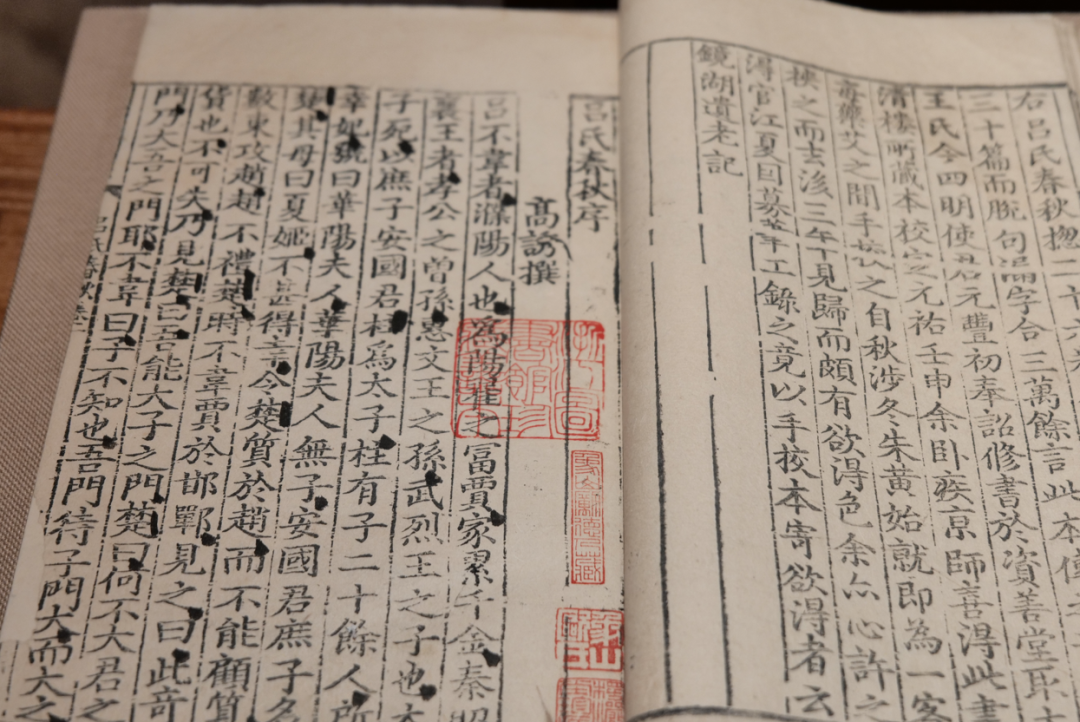 右呂氏春秋捴二十六卷
三十篇而脫句漏字合三萬餘言此本傳
王氏今四明使君元豐初奉詔修書於資善堂取
清樓所藏本校定之元祐壬申余臥疾京師喜得此書
每藥艾之間手校之自秋涉冬朱黃始就即為一客
挾之而去後三年見歸而頗有欲得色余亦心許之
得官江夏因募筆工錄之竟以手校本寄欲得者云
鏡湖遺老記
呂氏春秋序
高誘撰
呂不韋者濮陽人也為陽翟之富賈家累千金秦昭
襄王者孝公之曾孫惠文王之孫武烈王之子也太
子死以庶子安國君柱為太子柱有子二十餘人所
幸妃號曰華陽夫人華陽夫人無子安國君庶子名
楚其母曰夏姬不甚得幸令楚質於趙而不能顧質
數東攻趙趙不禮楚時不韋賈於邯鄲見之曰此奇
貨也不可失乃見楚曰吾能大子之門楚曰何不大君之
門乃大吾之門耶不韋曰子不知也吾門待子門大而大之